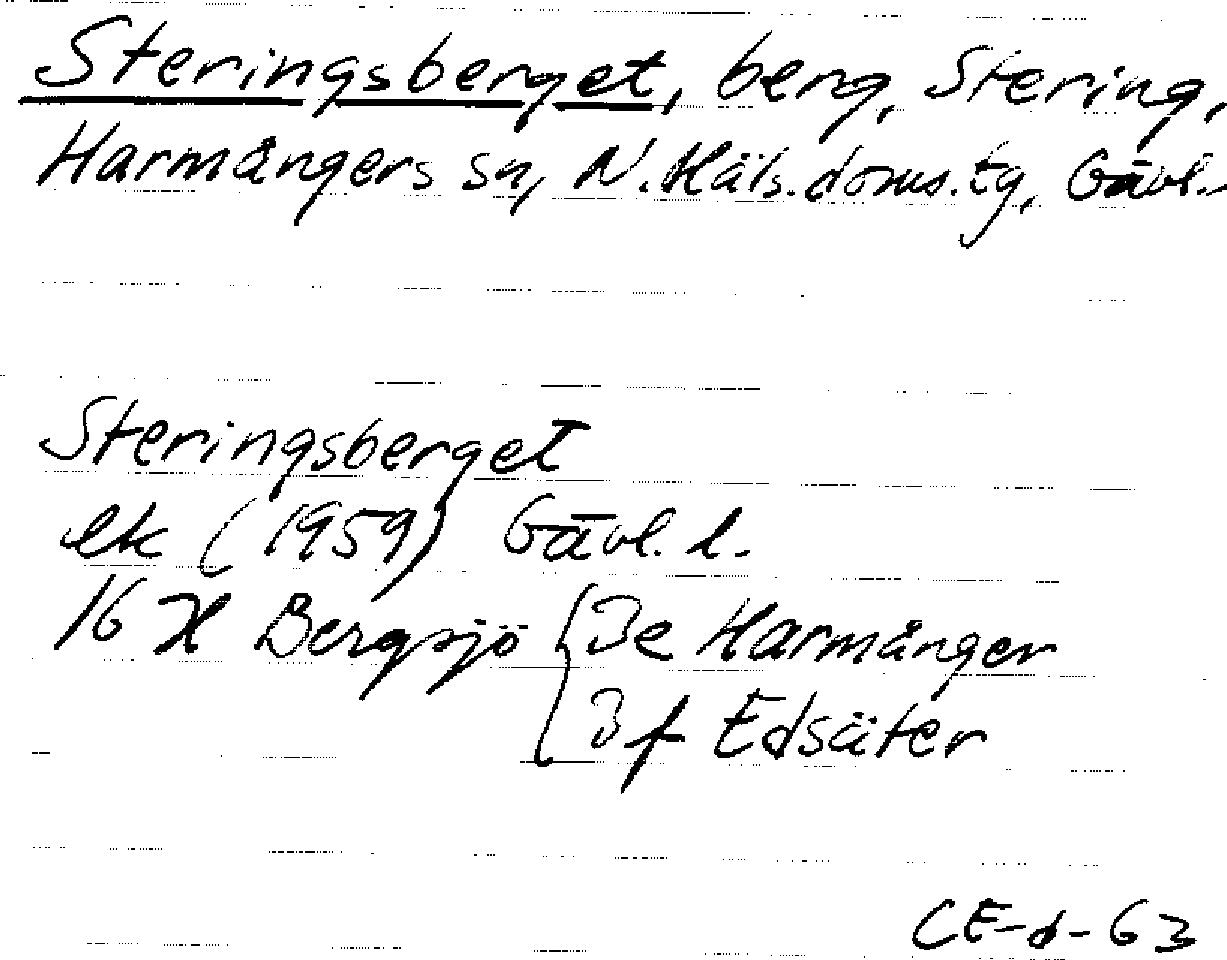 Steringsberget, berg, Stering,
Harmångers sn, N. Häls. doms. tg, Gävl.
Steringsberget
ek (1959) Gävl. l.
16 H Bergsjö { 3e Harmånger
3f Edsäter
CE-d-63